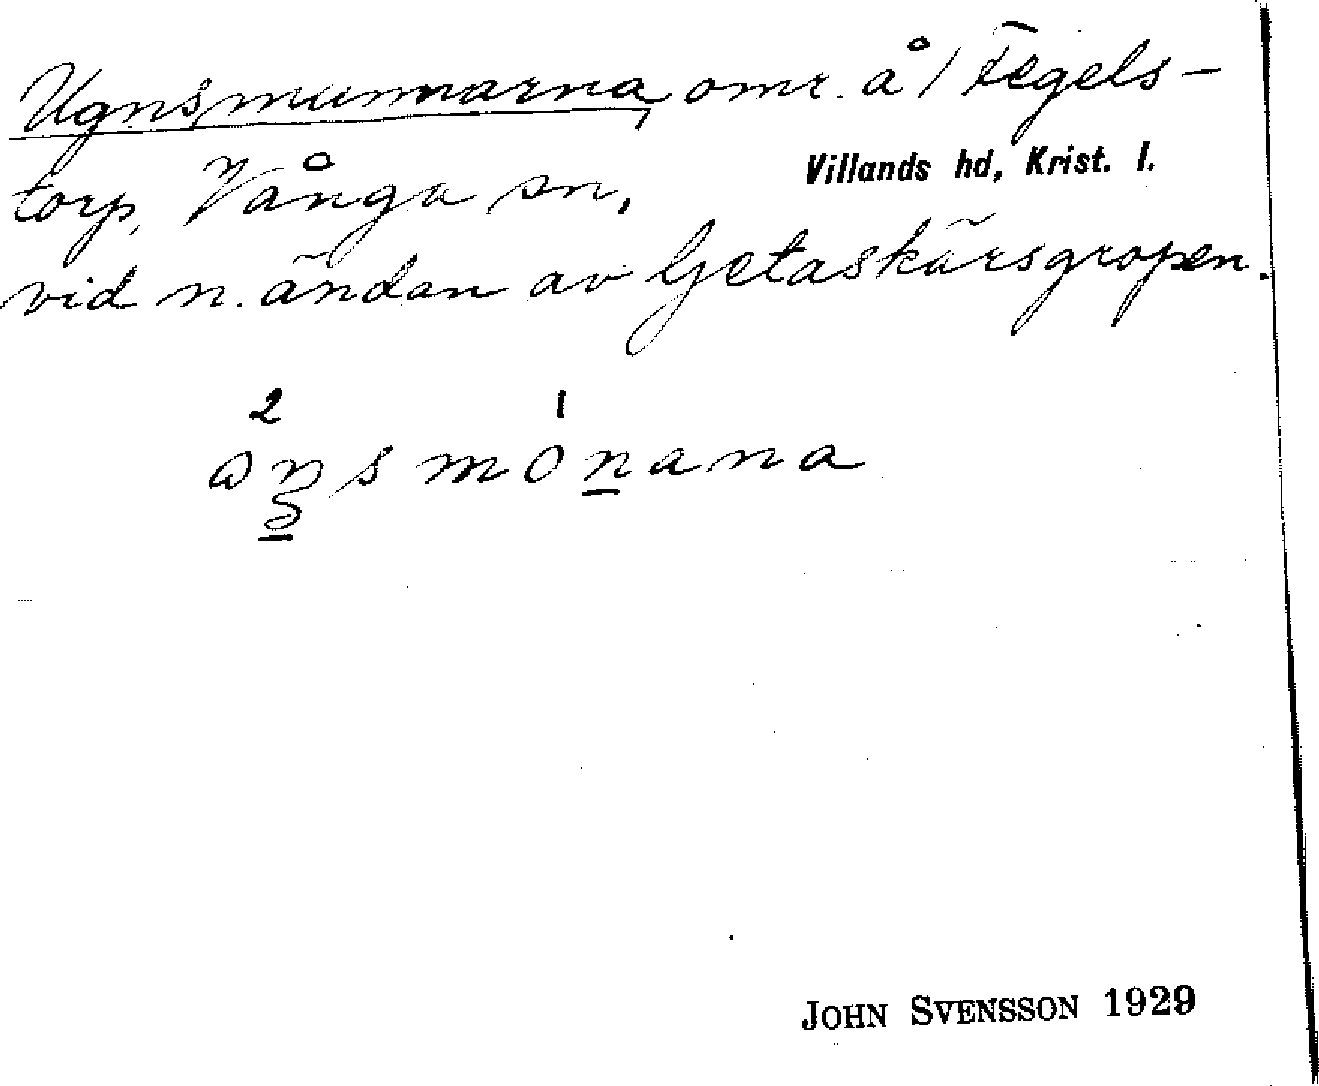 Ugnsmunnarna, omr. å / Tegels-
torp, Vånga sn, Villands hd, Krist. l.
vid n. ändan av Getaskärsgropen.
2 1
JOHN SVENSSON 1929